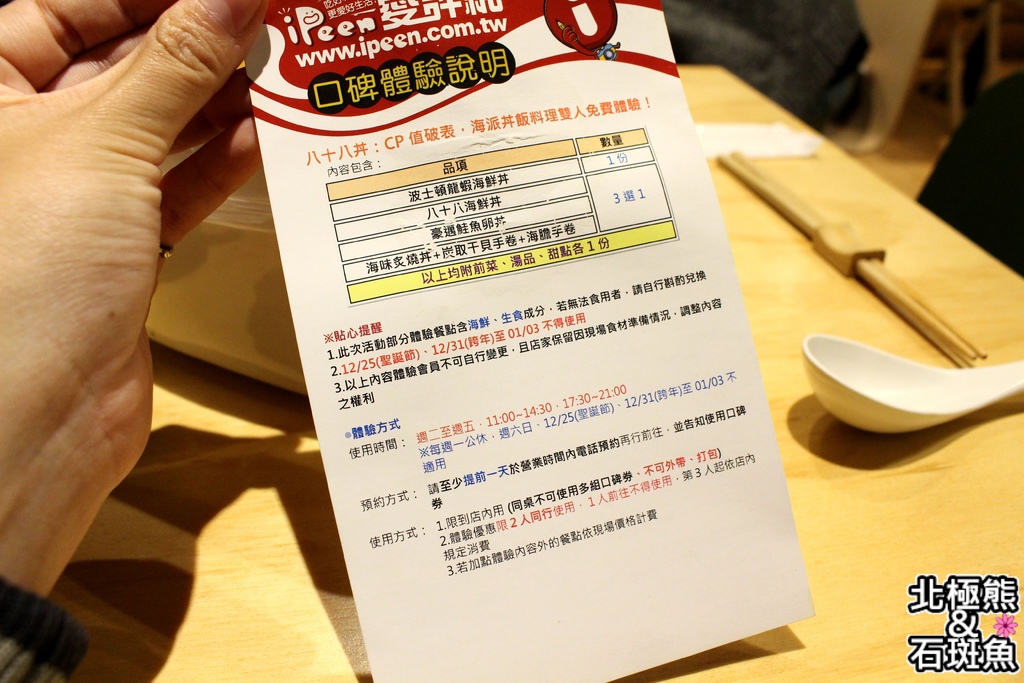 更愛好生活
iPeen 愛評網
www.ipeen.com.tw
口碑體驗說明
八十八丼：CP 值破表，海派丼飯料理雙人免費體驗！
內容包含：
品項 數量
波士頓龍蝦海鮮丼 1 份
八十八海鮮丼 3 選 1
豪邁鮭魚卵丼
海味炙燒丼+炭取干貝手卷+海膽手卷
以上均附前菜、湯品、甜點各 1 份
※貼心提醒
1.此次活動部分體驗餐點含海鮮、生食成分，若無法食用者，請自行斟酌兌換
2.12/25(聖誕節)、12/31(跨年)至 01/03 不得使用
3.以上內容體驗會員不可自行變更，且店家保留因現場食材準備情況，調整內容
之權利
◎體驗方式
使用時間： 週二至週五，11:00~14:30，17:30~21:00
※每週一公休，週六日、12/25(聖誕節)、12/31(跨年)至 01/03 不
適用
預約方式： 請至少提前一天於營業時間內電話預約再行前往，並告知使用口碑
券
使用方式： 1.限到店內用 (同桌不可使用多組口碑券、不可外帶、打包)
2.體驗優惠限 2 人同行使用，1 人前往不得使用，第 3 人起依店內
規定消費
3.若加點體驗內容外的餐點依現場價格計費
北極熊
&
石斑魚